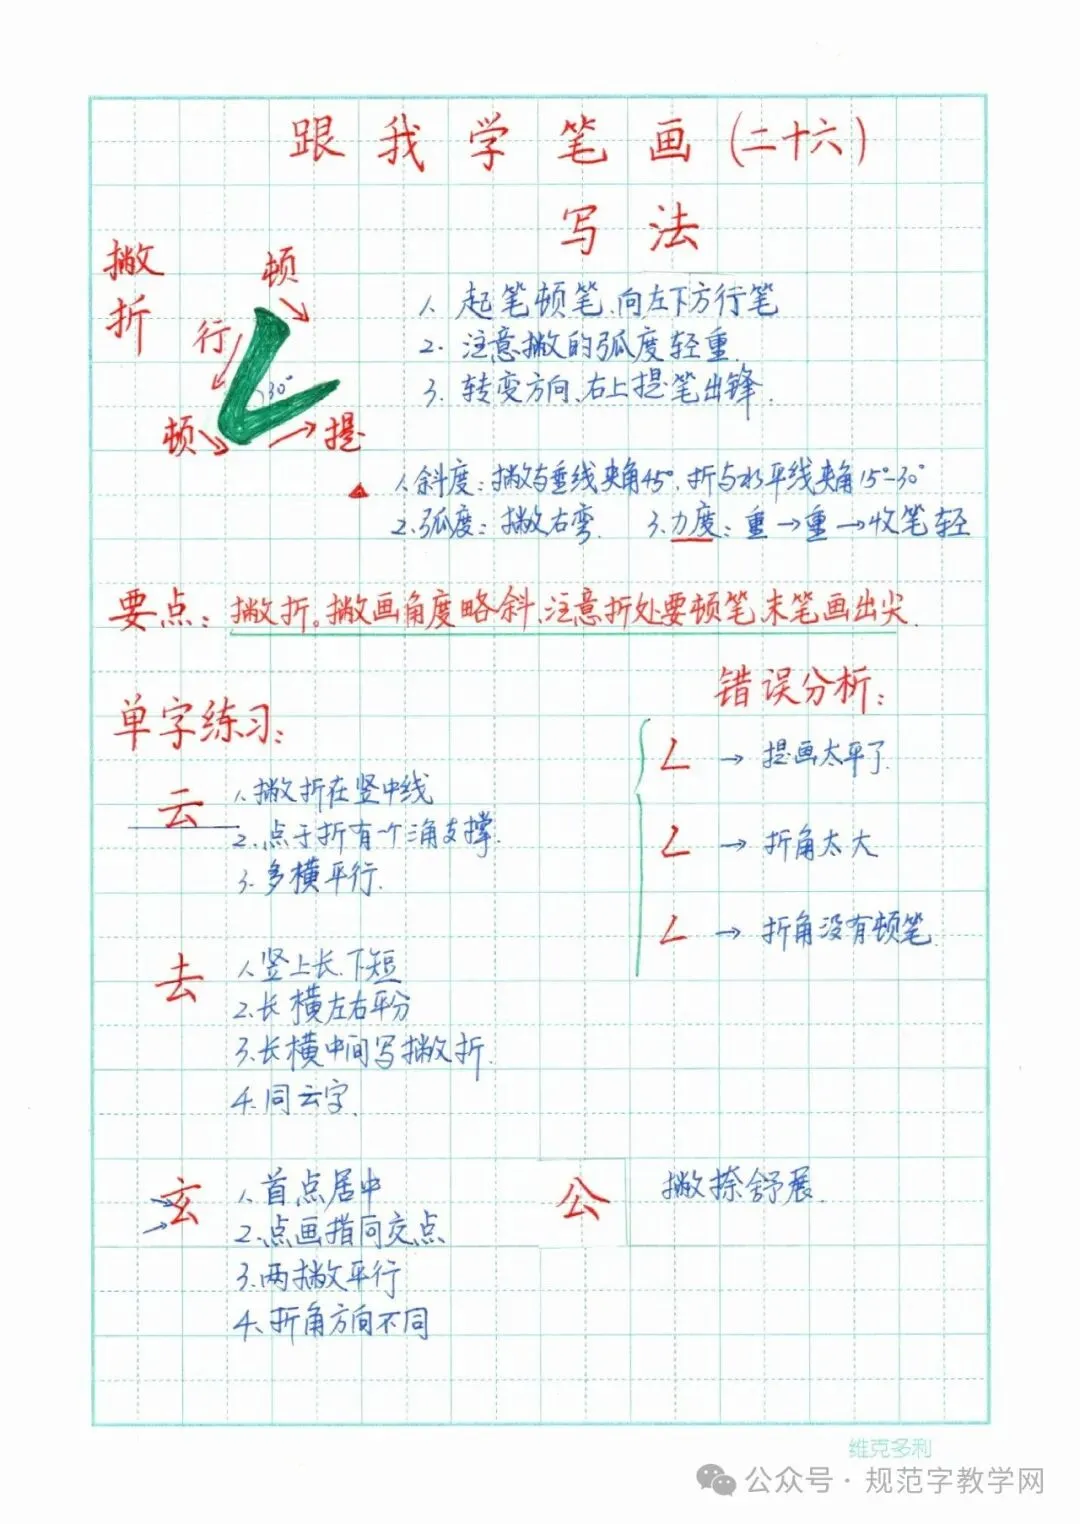 跟我学笔画(二十六)
写法
撇折
顿
行
30°
顿
提
1. 起笔顿笔、向左下方行笔
2. 注意撇的弧度轻重.
3. 转变方向、右上提笔出锋.
1.斜度：撇与垂线夹角45°.折与水平线夹角15°-30°
2.弧度：撇政右弯. 3.力度：重→重→收笔轻
要点：撇折。撇画角度略斜、注意折处要顿笔、末笔画出尖.
单字练习：
云
1.撇折在竖中线
2.点于折有一个角支撑.
3.多横平行.
错误分析：
→ 提画太平了.
→ 折角太大
→ 折角没有顿笔.
去
1.竖上长、下短
2.长横左右平分
3.长横中间写撇折.
4.同云字.
玄
1.首点居中
2.点画指向交点
3.两撇平行
4.折角方向不同
公
撇捺舒展.
维克多利
公众号·规范字教学网